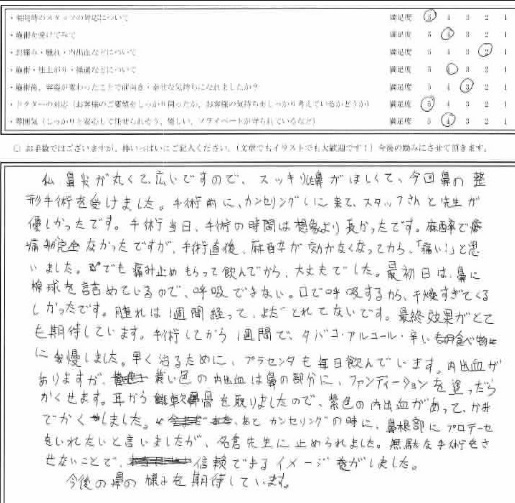 ・来院時のスタッフの対応について 満足度 5 4 3 2 1
・施術を受けてみて 満足度 5 4 3 2 1
・お痛み・腫れ・内出血などについて 満足度 5 4 3 2 1
・施術・仕上がり・経過などについて 満足度 5 4 3 2 1
・施術後、容姿が変わったことで前向き・幸せな気持ちになれましたか？ 満足度 5 4 3 2 1
・ドクターの対応（お客様のご要望をしっかり伺ったか、お客様の気持ちをしっかり考えているかどうか） 満足度 5 4 3 2 1
・雰囲気（しっかりと安心して任せられそう、優しい、プライベートが守られているなど） 満足度 5 4 3 2 1
○ お手数ではございますが、枠いっぱいにご記入ください。（文章でもイラストでも大歓迎です！）今後の励みにさせて頂きます。
私 鼻尖が丸くて広いですので、スッキリ鼻がほしくて、今回鼻の整
形手術を受けました。手術前に、カンセリングしに来て、スタッフさんと先生が
優しかったです。手術当日、手術の時間は想象より長かったです。麻酔で疼
痛 完全なかったですが、手術直後、麻酔が効かなくなってから、「痛い！」と思
いました。でも痛み止めもらって飲んでから、大丈夫でした。最初日は、鼻に
棉球を詰めているので、呼吸できない。口で呼吸するから、干燥すぎてくる
しかったです。腫れは1週間経って、まだとれてないです。最終効果がとて
も期待しています。手術してから1週間で、タバコ・アルコール・辛い食べ物
に我慢しました。早く治るために、プラセンタも毎日飲んでいます。内出血が
ありますが、 黄い色の内出血は鼻の部分に、ファンデーションを塗ったら
かくせます。耳から 軟骨を取りましたので、紫色の内出血があって、かみ
でかくしました。 あと カンセリングの時に、鼻根部にプロテーゼ
をいれたいと言いましたが、名倉先生に止められました。無駄な手術をさ
せないことで、 信頼できるイメージがしました。
今後の鼻の様子を期待しています。